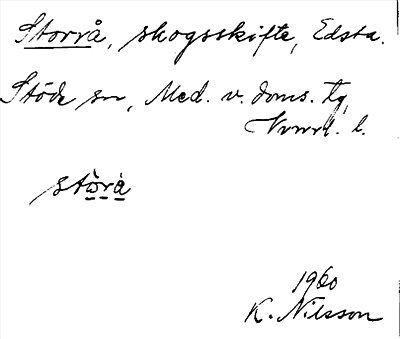 Storrå, skogsskifte, Edsta.
Stöde sn, Med. v. doms. tg,
Vnorrl. l.
stòrá
1960
K. Nilsson